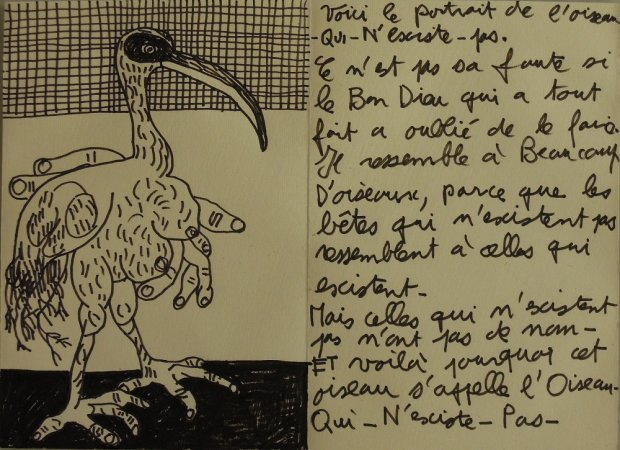 Voici le portrait de l'oiseau
-QUI-N'existe-pas.
Ce n'est pas sa faute si
le Bon Dieu qui a tout
fait a oublié de le faire.
Il ressemble à Beaucoup
D'oiseaux, parce que les
bêtes qui n'existent pas
ressemblent à celles qui
existent-
Mais celles qui n'existent
pas n'ont pas de nom-
ET voilà pourquoi cet
oiseau s'appelle l'Oiseau-
Qui-N'existe-Pas-